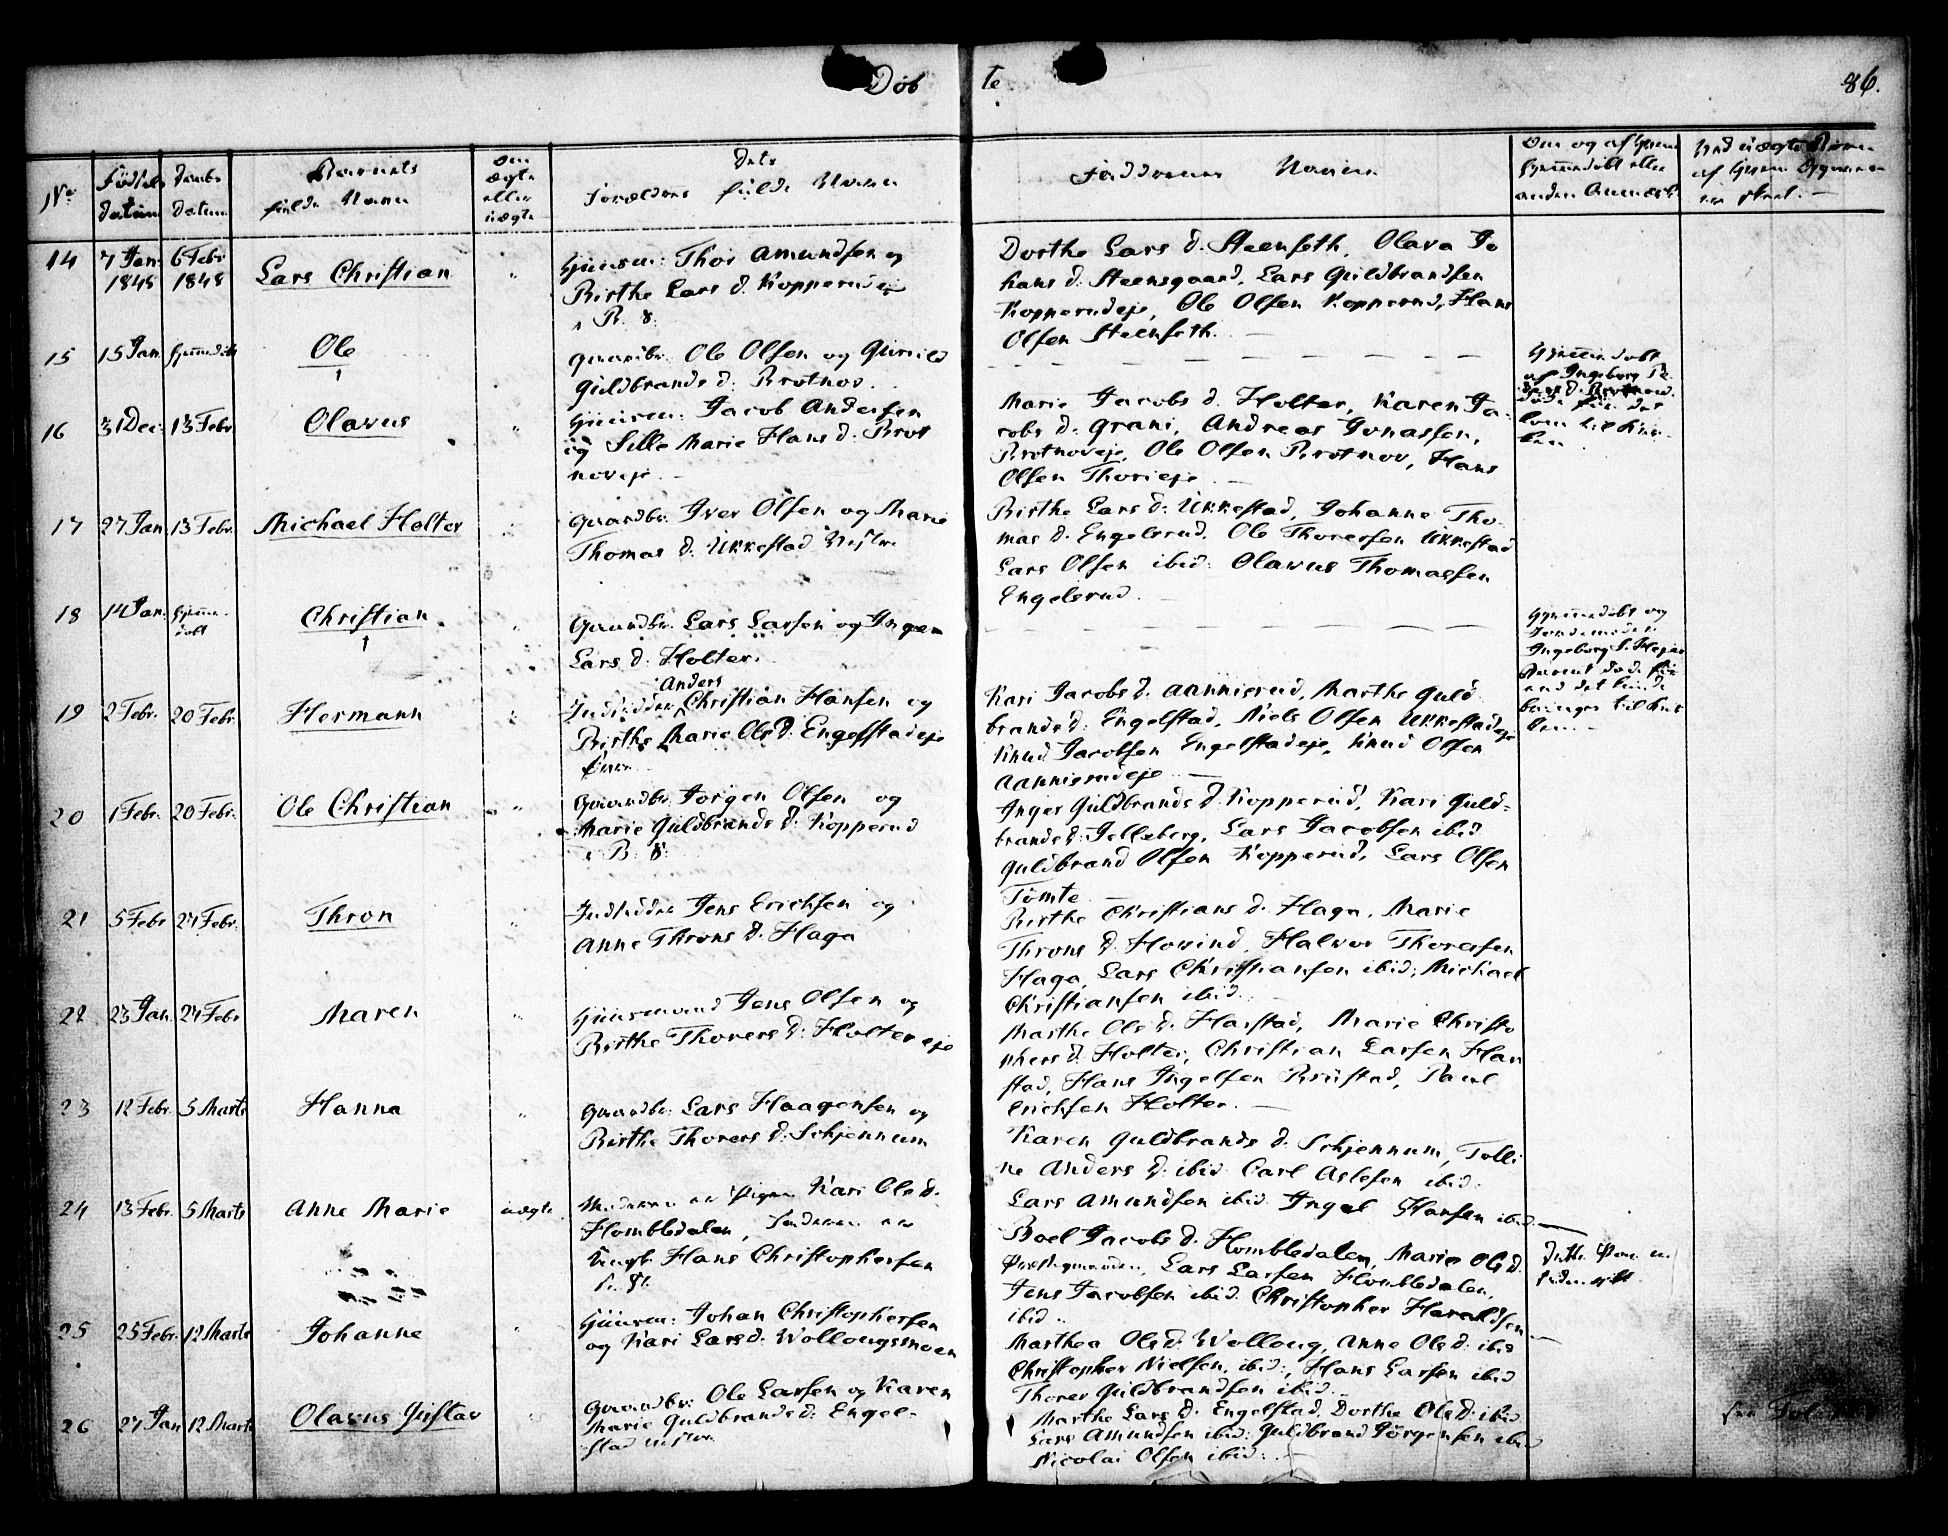 Døb te 86.
No
Fødsels datum
Daabs datum
Barnets fulde Navn
Om ægte eller uægte
Dets Forældres fulde Navn
Faddernes Navne
14 7 Jan: 1848 6 Febr 1848 Lars Christian " Huusm: Thor Amundsen og
Birthe Lars d. Kopperudeje
B. 8.
Dorthe Lars d. Steenseth, Olava Jo
hans d. Steensgaard, Lars Guldbrandsen
Kopperudeje, Ole Olsen Kopperud, Hans
Olsen Steenseth. —
15 15 Jan Ole Gaardbr. Ole Olsen og Gunild
Guldbrands d: Brotnov.
— — — — — — —
af Ingeborg
16 31 Dec: 13 Febr. Olavus " Huusm: Jacob Andersen
og Sille Marie Hans d: Brot
noveje. —
Marie Jacobs d. Holter, Karen Ja-
cobs d. Grani, Andreas Jonassen,
Brotnoveje, Ole Olsen Brotnov, Hans
Olsen Thorieje —
17 27 Jan 13 Febr. Michael Holter " Gaardbr. Iver Olsen og Marie
Thomas d. Ukkestad
Birthe Lars d: Ukkestad, Johanne Tho-
mas d. Engelsrud, Ole Thoresen Ukkestad
Lars Olsen ibid: Olavus Thomassen
Engelsrud. —
18 14 Jan. Christian. " Gaardbr. Lars Larsen og Ingen
Lars d: Holter.
— — — — — —
Ingeborg
19 2 Febr. 20 Febr. Hermann " Anders
Christian Hansen og
Birthe Marie Ols d. Engelstadeje
Kari Jacobs d. Aannerud, Marthe Guld
brands d. Engelstad, Niels Olsen Ukkestadeje
Knud Jacobsen Engelstadeje, Knud Olsen
Aannerudeje —
20 1 Febr. 20 Febr. Ole Christian " Gaardbr. Jørgen Olsen og
Marie Guldbrands d: Kopperud
B. 8.
Inger Guldbrands d. Kopperud, Kari Guld-
brands d. Lars Jacobsen ibid
Guldbrand Olsen Kopperud, Lars Olsen
Tømte —
21 5 Febr 27 Febr. Thron " Jens Erichsen og
Anne Throns d. Haga
Birthe Christians d. Haga, Marie
Throns d. Hovind, Halvor Thoresen
Haga, Lars Christiansen ibid; Michael
Christiansen ibid.
22 23 Jan. 27 Febr Maren " Huusmand Jens Olsen og
Birthe Thorers d: Holtereje
Marthe Ols d. Harstad, Marie Christo
phers d. Holter, Christian Larsen Har
stad, Hans Ingelsen Brustad, Paul
Erichsen Holter. —
23 12 Febr. 5 Marts Hanna " Gaardbr: Lars Haagensen og
Birthe Thorers d. Schjennum
Karen Guldbrands d. Schjennum, Tolli
ne Anders d. ibid Carl Aslesen ibid.
Lars Amundsen ibid. Ingel Hansen ibid. —
24 13 Febr. 5 Marts Anne Marie uægte Moderen er Pigen Kari Ols d.
Hombledalen, Faderen er
Ungk. Hans Christophersen
Boel Jacobs d. Hombledalen, Marie Ols d.
Lars Larsen Hombledalen,
Jens Jacobsen ibid. Christopher Haraldsen
ibid.
25 25 Febr. 12 Marts Johanne " Huusm: Johan Christophersen
og Kari Lars d. Wollaugsmoen
Marthea Ols d. Wollaug, Anne Ols d: ibid
Christopher Nielsen, ibid:, Hans Larsen ibid
Thorer Guldbrandsen ibid.
26 27 Jan 12 Marts Olavus Gustav " Gaardbr. Ole Larsen og Karen
Marie Guldbrands d: Engel-
stad
Marthe Lars d. Engelstad, Dorthe Ols d: ibid
Lars Amundsen ibid: Guldbrand Jørgensen ibid
Nicolai Olsen ibid: